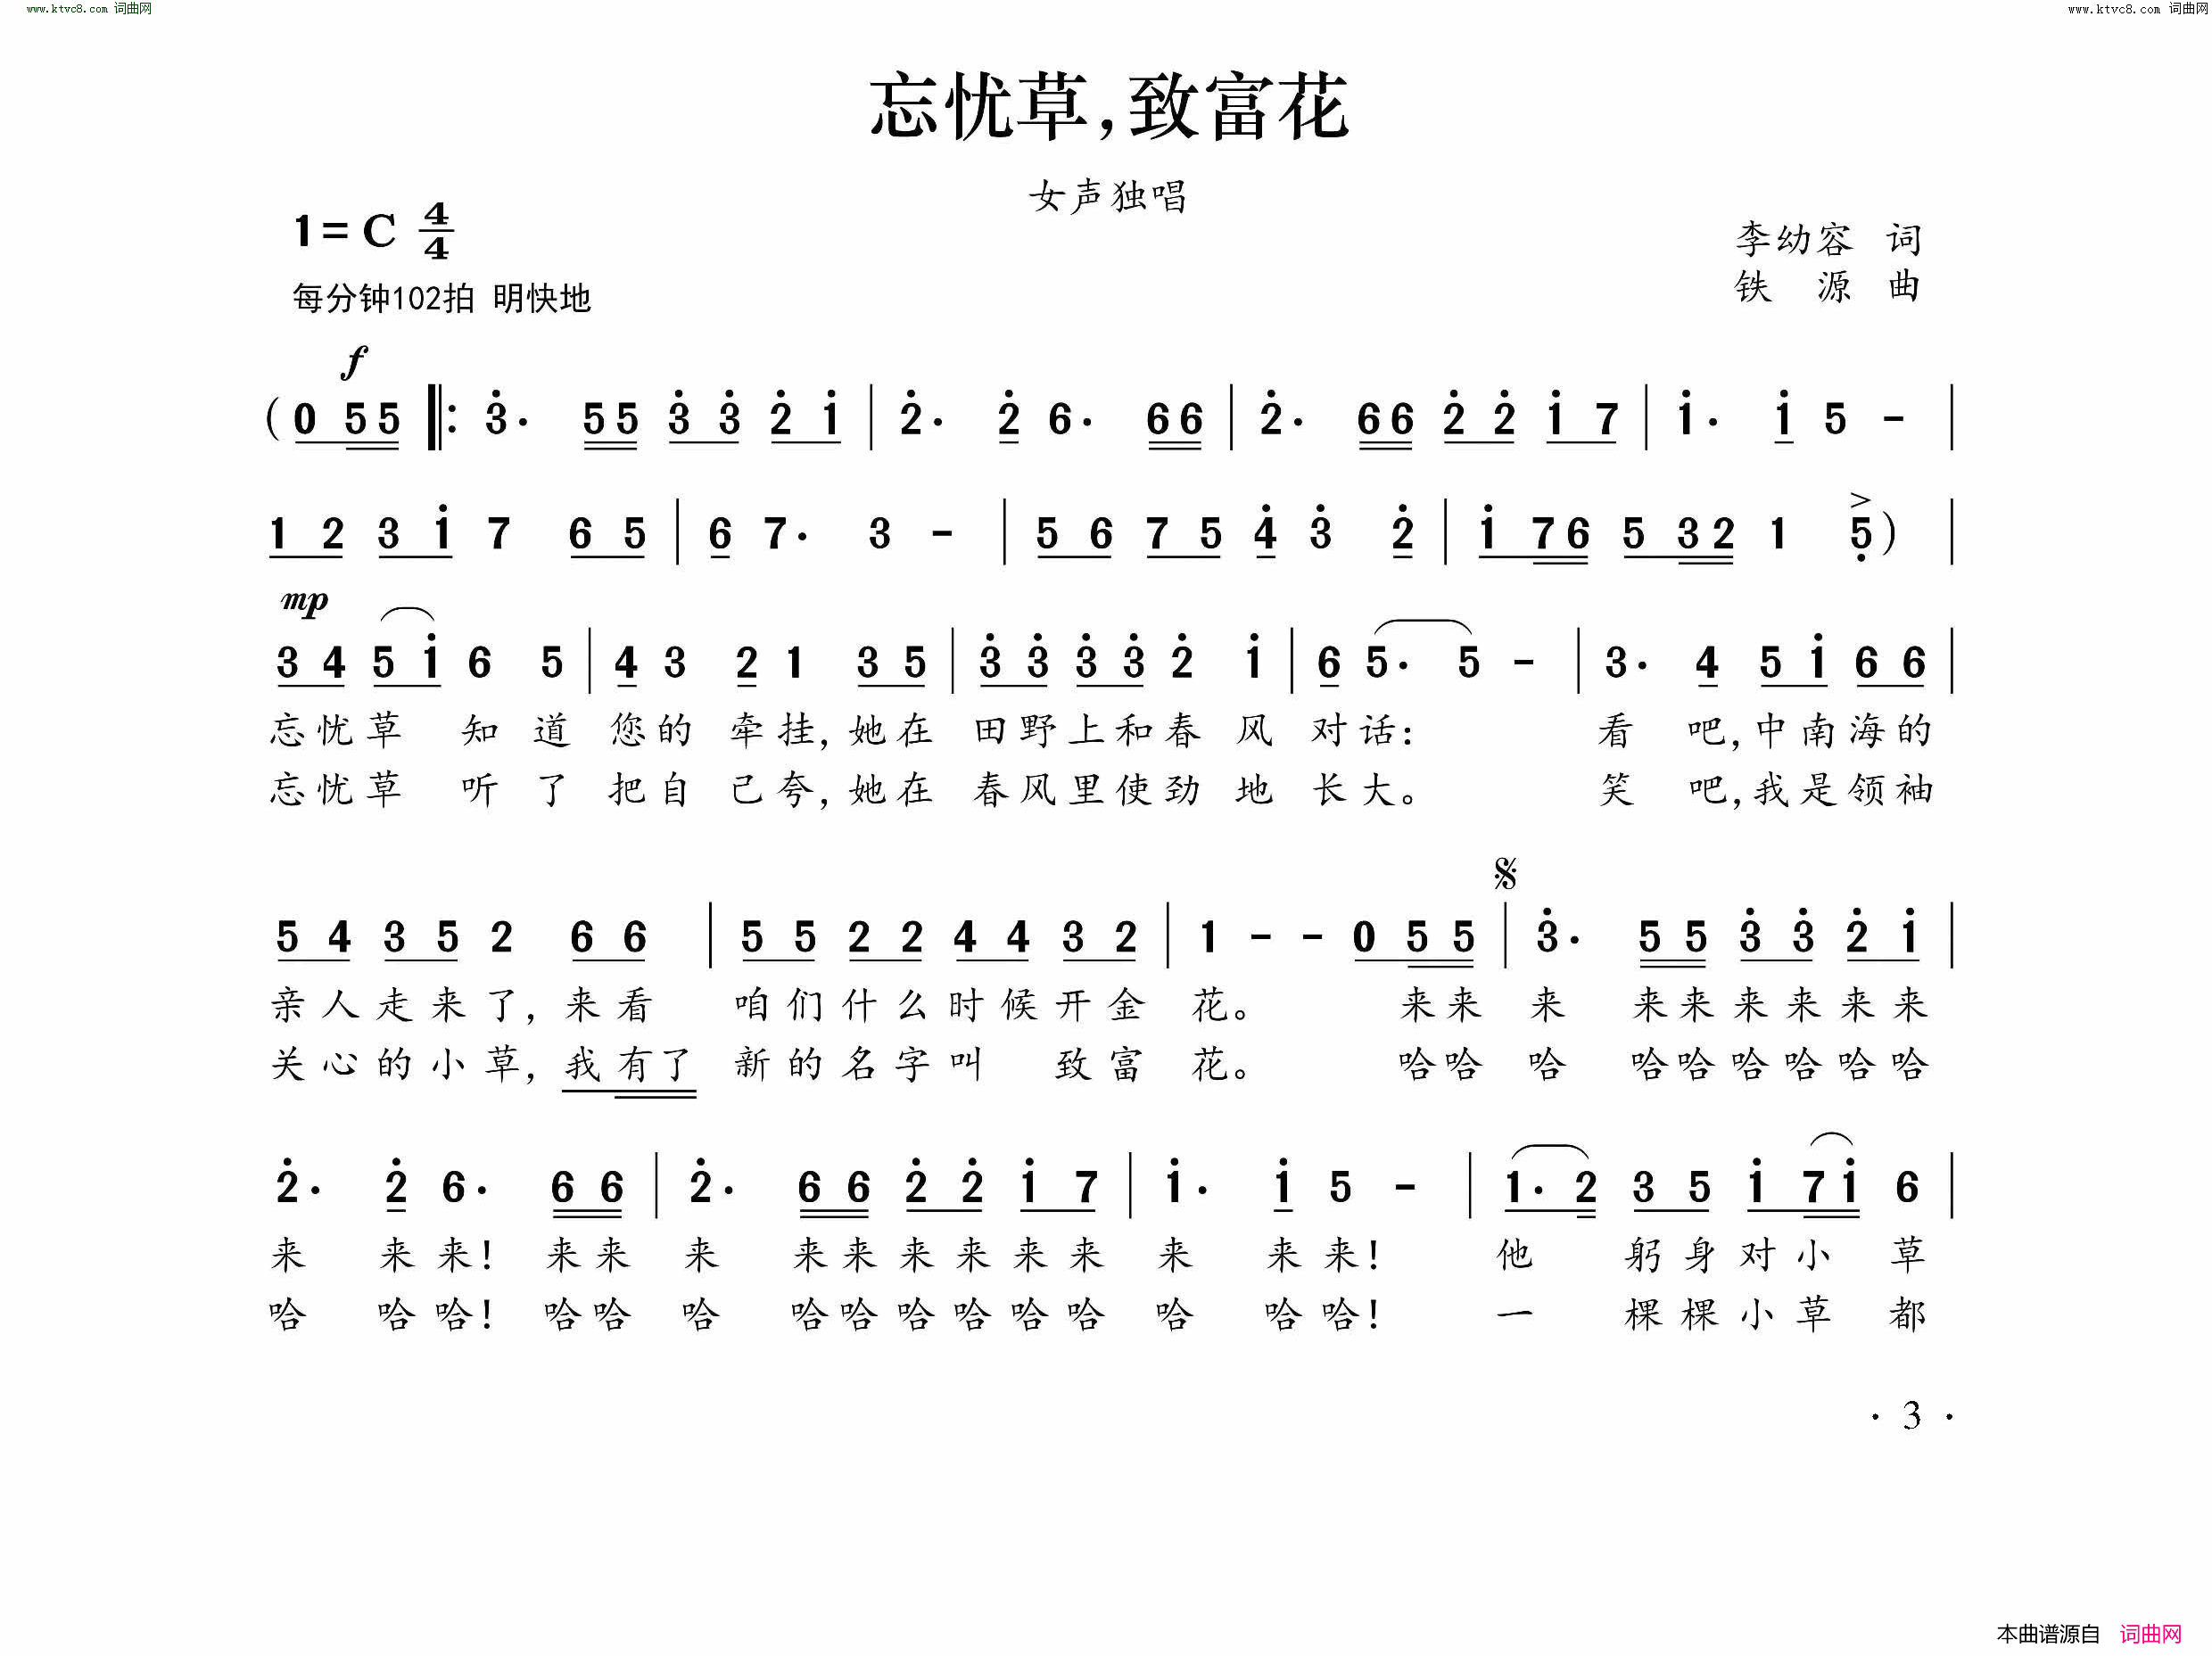 www.ktvc8.com 词曲网
www.ktvc8.com 词曲网
忘忧草,致富花
女声独唱
1=C 4/4
李幼容 词
铁 源 曲
每分钟102拍 明快地
f
(0 5 5 ‖: 3̇· 5 5 3̇ 3̇ 2̇ 1̇ | 2̇· 2̇ 6· 6 6 | 2̇· 6 6 2̇ 2̇ 1̇ 7 | 1̇· 1̇ 5 - |
1 2 3 1̇ 7 6 5 | 6 7· 3 - | 5 6 7 5 4̇ 3̇ 2̇ | 1̇ 7 6 5 3 2 1 5̣) |
mp
3 4 5 1̇ 6 5 | 4 3 2 1 3 5 | 3̇ 3̇ 3̇ 3̇ 2̇ 1̇ | 6 5· 5 - | 3· 4 5 1̇ 6 6 |
忘忧草 知道 您的 牵挂,她在 田野上和春 风 对话: 看 吧,中南海的
忘忧草 听了 把自 己夸,她在 春风里使劲 地 长大。 笑 吧,我是领袖
5 4 3 5 2 6 6 | 5 5 2 2 4 4 3 2 | 1 - - 0 5 5 | 3̇· 5 5 3̇ 3̇ 2̇ 1̇ |
亲人走来了,来看 咱们什么时候开金 花。 来来 来 来来来来来来
关心的小草,我有了 新的名字叫 致富 花。 哈哈 哈 哈哈哈哈哈哈
2̇· 2̇ 6· 6 6 | 2̇· 6 6 2̇ 2̇ 1̇ 7 | 1̇· 1̇ 5 - | 1· 2 3 5 1̇ 7 1̇ 6 |
来 来来! 来来 来 来来来来来来 来 来来! 他 躬身对小 草
哈 哈哈! 哈哈 哈 哈哈哈哈哈哈 哈 哈哈! 一 棵棵小草 都
· 3 ·
本曲谱源自 词曲网